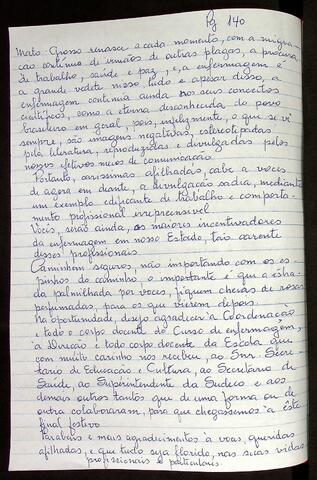 Pg 140
Mato-Grosso renasce a cada momento, com a migra-
ção contínua de irmãos de outras plagas, a procura
de trabalho, saúde e paz, e, a enfermagem é
a grande vedete nisso tudo e apesar disso, a
enfermagem continua ainda nos seus conceitos
científicos, como a eterna desconhecida do povo
brasileiro em geral, pois, infelizmente, o que se vê
sempre, são imagens negativas, estereotipadas
pela literatura, reproduzidas e divulgadas pelos
nossos efetivos meios de comunicação.
Portanto, caríssimas afilhadas, cabe a vocês
de agora em diante, a divulgação sadia, mediante
um exemplo edificante de trabalho e comporta-
mento profissional irrepreensível
Vocês, serão ainda, os maiores incentivadores
da enfermagem em nosso Estado, tão carente
desses profissionais.
Caminhem seguros, não importando com os es-
pinhos do caminho, o importante é que a estra-
da palmilhada por vocês, fiquem cheias de rosas
perfumadas, para os que vierem depois.
Na oportunidade, desejo agradecer à Coordenação
e todo o corpo docente do Curso de enfermagem,
a Direção e todo corpo docente da Escola que
com muito carinho nos recebeu, ao Snr. Secre-
tário de Educação e Cultura, ao Secretário de
Saúde, ao Superintendente da Sudeco e aos
demais outros tantos que de uma forma ou de
outra colaboraram, para que chegássemos a êste
final festivo
Parabéns e meus agradecimentos à voces, queridas
afilhadas, e que tudo seja florido, nas suas vidas
profissionais e particulares.